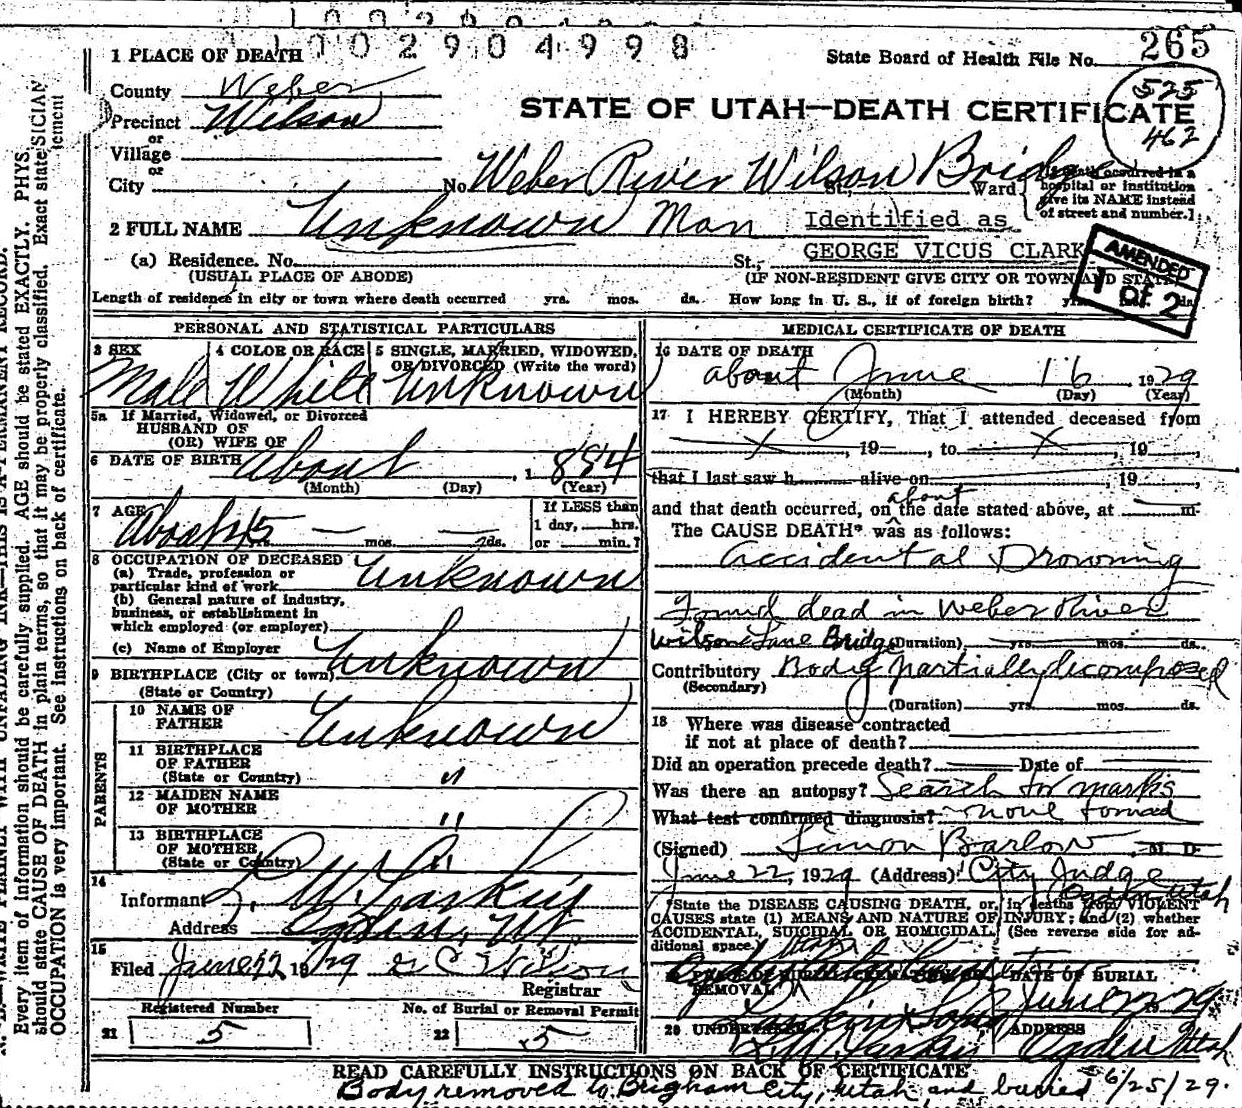 1002904998
1 PLACE OF DEATH
State Board of Health File No. 265
County Weber
525
462
STATE OF UTAH—DEATH CERTIFICATE
Precinct Wilson
or
Village
or
City No. Weber River Wilson Bridge St., Ward
hospital or institution
give its NAME instead
of street and number.]
2 FULL NAME Unknown Man Identified as
GEORGE VICUS CLARK
AMENDED
1 OF 2
(a) Residence. No. St.,
(USUAL PLACE OF ABODE) (IF NON-RESIDENT GIVE CITY OR TOWN AND STATE)
Length of residence in city or town where death occurred yrs. mos. ds. How long in U. S., if of foreign birth? yrs. mos. ds.
PERSONAL AND STATISTICAL PARTICULARS
3 SEX 4 COLOR OR RACE 5 SINGLE, MARRIED, WIDOWED,
OR DIVORCED (Write the word)
Male White Unknown
5a If Married, Widowed, or Divorced
HUSBAND OF
(OR) WIFE OF
6 DATE OF BIRTH about , 1884
(Month) (Day) (Year)
7 AGE About 45 yrs. — mos. — ds.
If LESS than
1 day, hrs.
or min.?
8 OCCUPATION OF DECEASED
(a) Trade, profession or
particular kind of work Unknown
(b) General nature of industry,
business, or establishment in
which employed (or employer)
(c) Name of Employer
9 BIRTHPLACE (City or town) Unknown
(State or Country)
PARENTS
10 NAME OF
FATHER Unknown
11 BIRTHPLACE
OF FATHER
(State or Country) "
12 MAIDEN NAME
OF MOTHER "
13 BIRTHPLACE
OF MOTHER
(State or Country) "
14
Informant L. W. Larkin
Address Ogden, Ut.
15
Filed June 22 1929 G C Wilson
Registrar
Registered Number No. of Burial or Removal Permit
21 5 22 5
MEDICAL CERTIFICATE OF DEATH
16 DATE OF DEATH
about June 16 , 1929
(Month) (Day) (Year)
17 I HEREBY CERTIFY, That I attended deceased from
x , 19 , to x , 19
that I last saw h alive on , 19 ,
about
and that death occurred, on the date stated above, at m.
The CAUSE DEATH* was as follows:
accidental Drowning
Found dead in Weber River
Wilson Lane Bridge (Duration) yrs. mos. ds.
Contributory Body partially decomposed
(Secondary)
(Duration) yrs. mos. ds.
18 Where was disease contracted
if not at place of death?
Did an operation precede death? Date of
Was there an autopsy? Search for marks
What test confirmed diagnosis? none found
(Signed) Simon Barlow , M. D.
June 22, 1929 (Address) City Judge
Ogden Utah
*State the DISEASE CAUSING DEATH, or, in deaths from VIOLENT
CAUSES state (1) MEANS AND NATURE OF INJURY; and (2) whether
ACCIDENTAL, SUICIDAL OR HOMICIDAL. (See reverse side for ad-
ditional space.)
REMOVAL DATE OF BURIAL
June 22 1929
20 UNDERTAKER ADDRESS
Larkin & Sons
L. W. Larkin Ogden Utah
READ CAREFULLY INSTRUCTIONS ON BACK OF CERTIFICATE
Body removed to Brigham City, Utah and buried 6/25/29.
Every item of information should be carefully supplied. AGE should be stated EXACTLY. PHYSICIAN
should state CAUSE OF DEATH in plain terms, so that it may be properly classified. Exact statement
OCCUPATION is very important. See instructions on back of certificate.